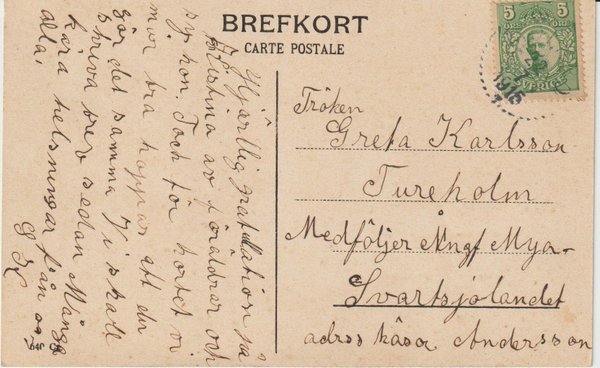 BREFKORT
CARTE POSTALE
Hjärtlig gratulation på
Kristina av föräldrar och
syskon. Tack för kortet vi
mår bra hoppas att du
gör det samma Vi skall
skriva brev sedan Många
kära helsningar från oss
alla.
G K
5 5
SVERIGE
1916
Fröken
Greta Karlsson
Tureholm
Medföljer Ångf Mya-
Svartsjölandet
adrss Andersson